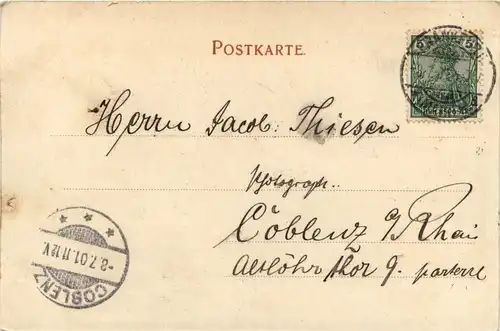 POSTKARTE.
5 5
Herrn Jacob: Thiesen
Photograph..
Coblenz a/Rhein
Altlöhrthor 9. parterre
COBLENZ
-8.7.01.11-12V.